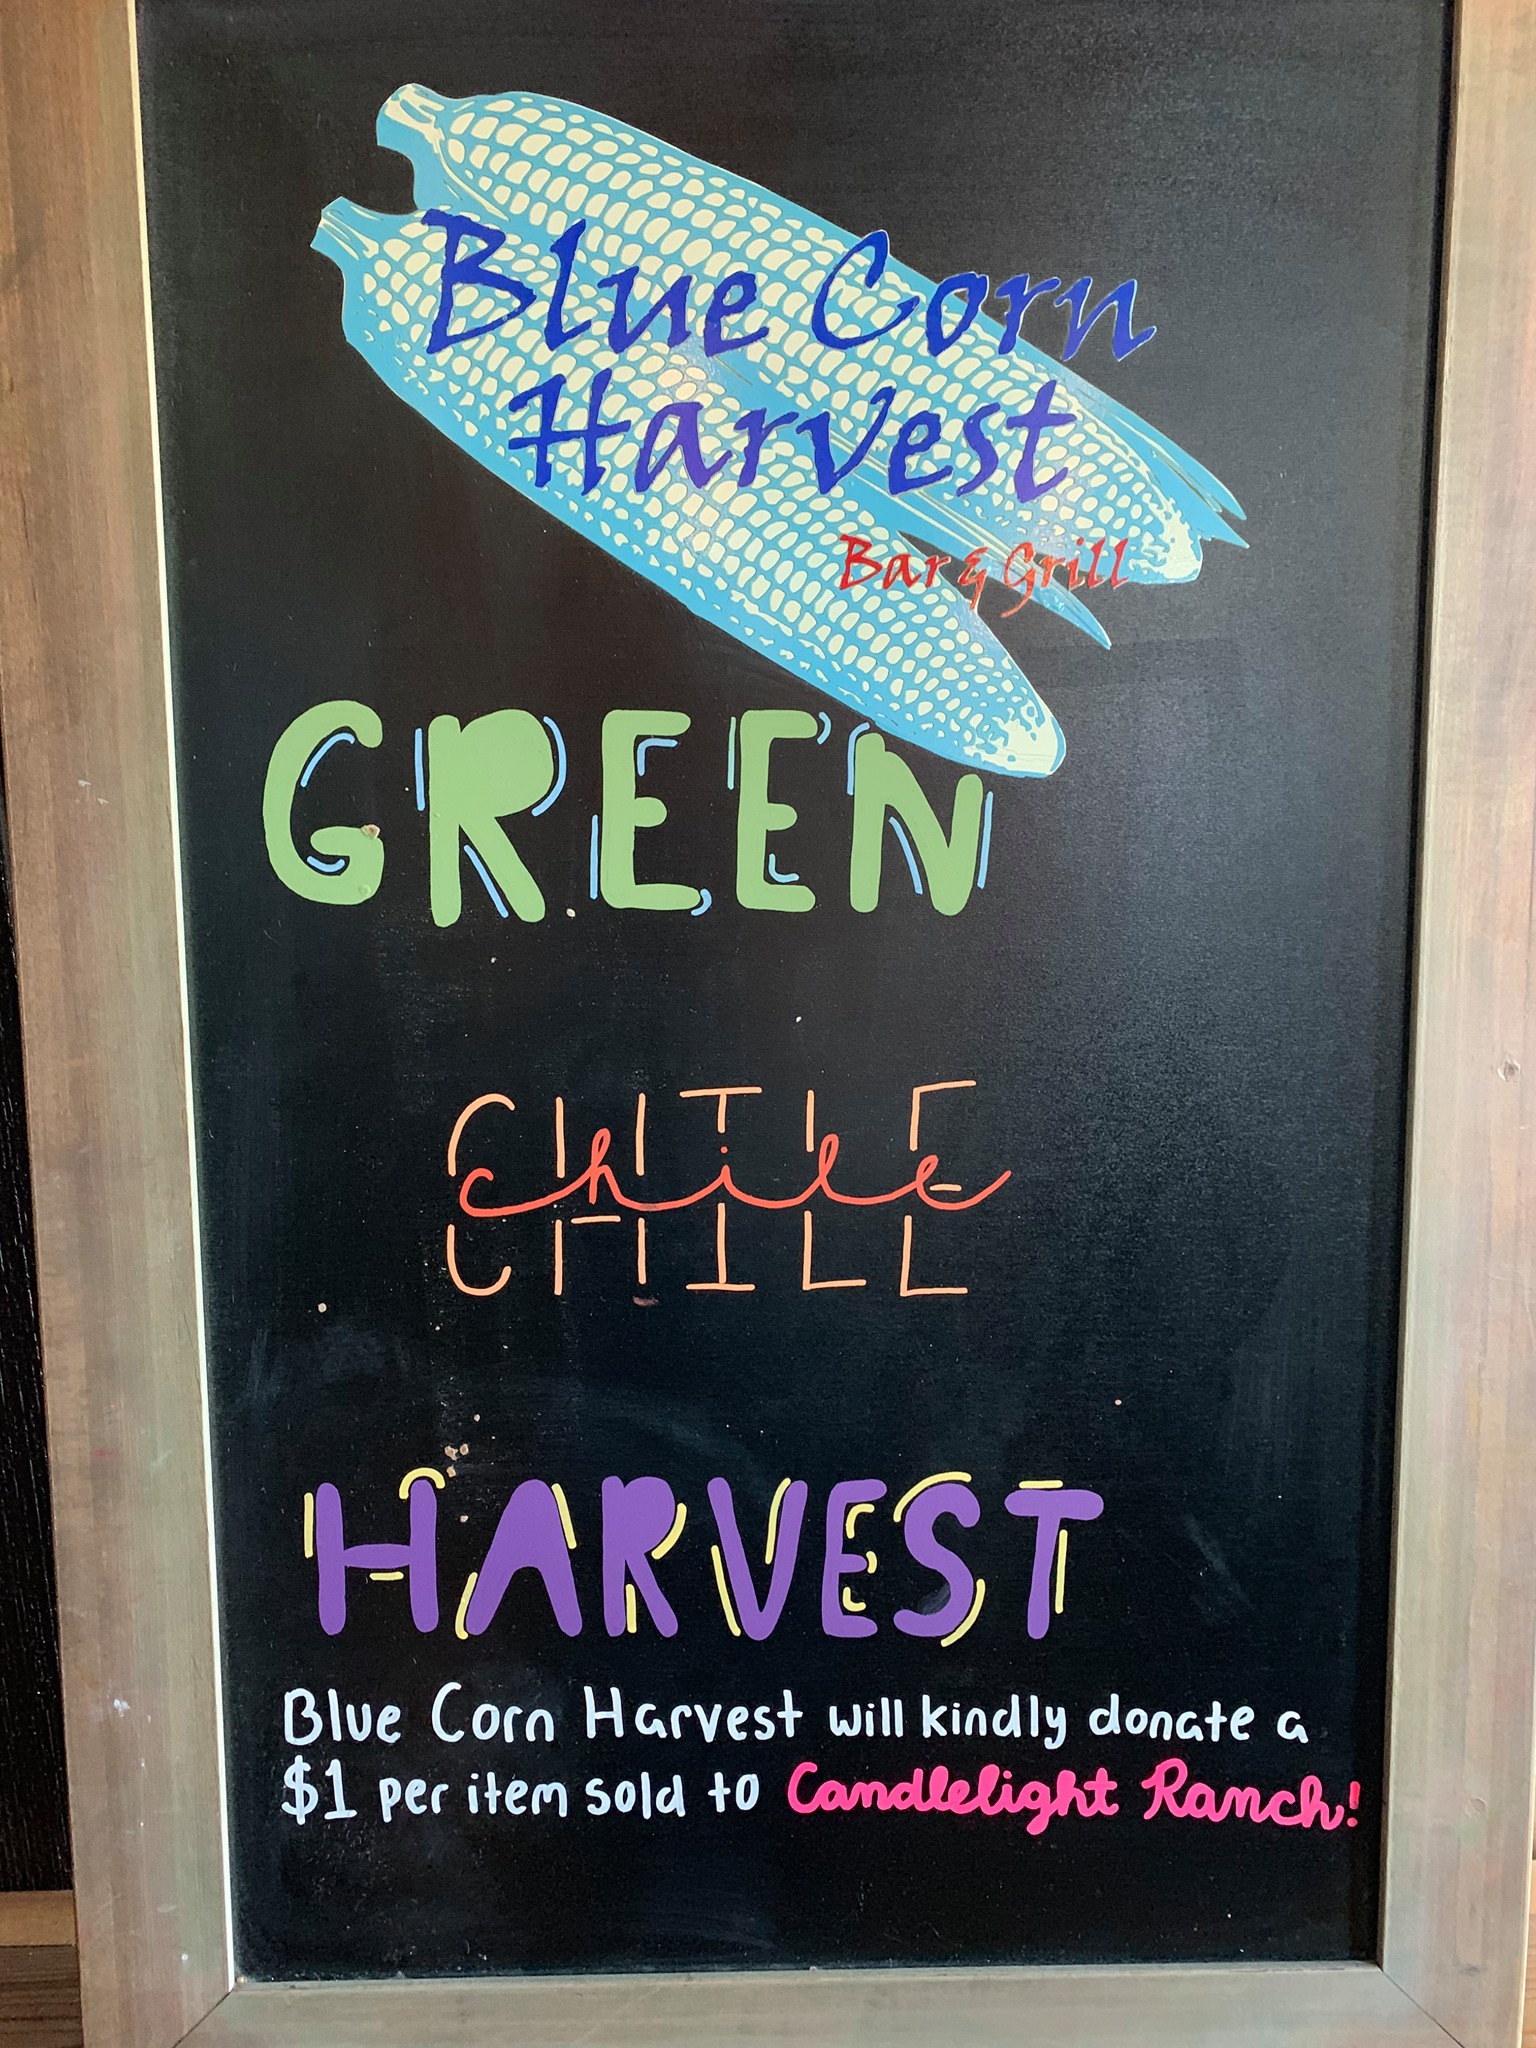 Blue Corn
Harvest
Bar & Grill
GREEN
CHILE
chile
HARVEST
Blue Corn Harvest will kindly donate a
$1 per item sold to Candlelight Ranch!